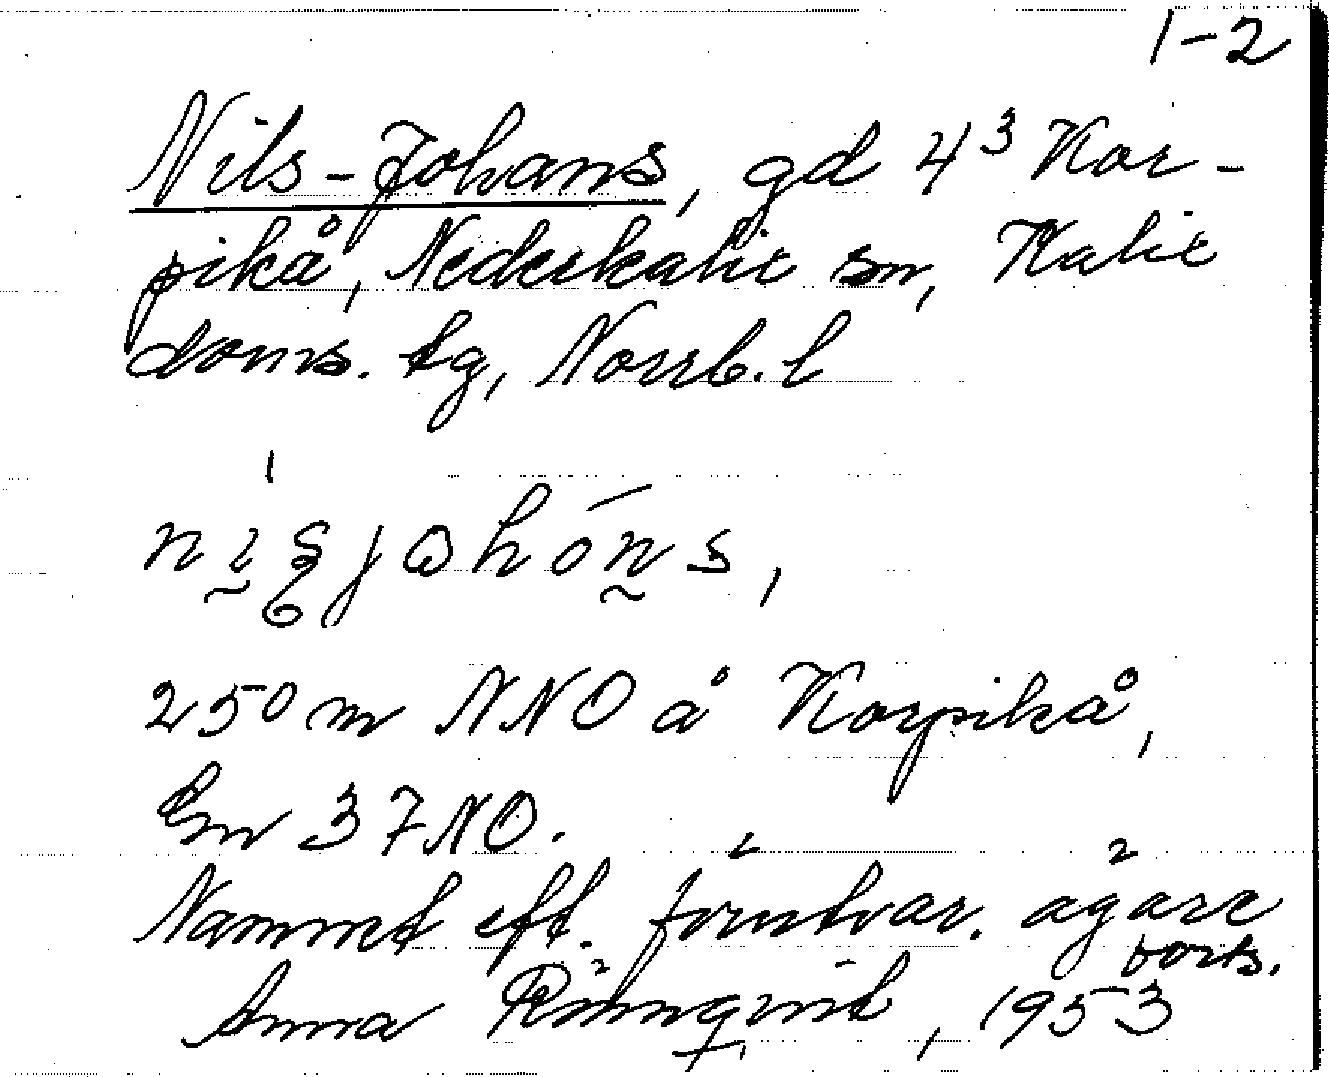 1-2
Nils-Johans, gd 4³ Kor-
pikå, Nederkalix sn, Kalix
doms. tg, Norrb. l
250 m NNO å Korpikå,
En 37NO.
Namnet eft. förutvar. ägare
forts.
Anna Rönnqvist, 1953